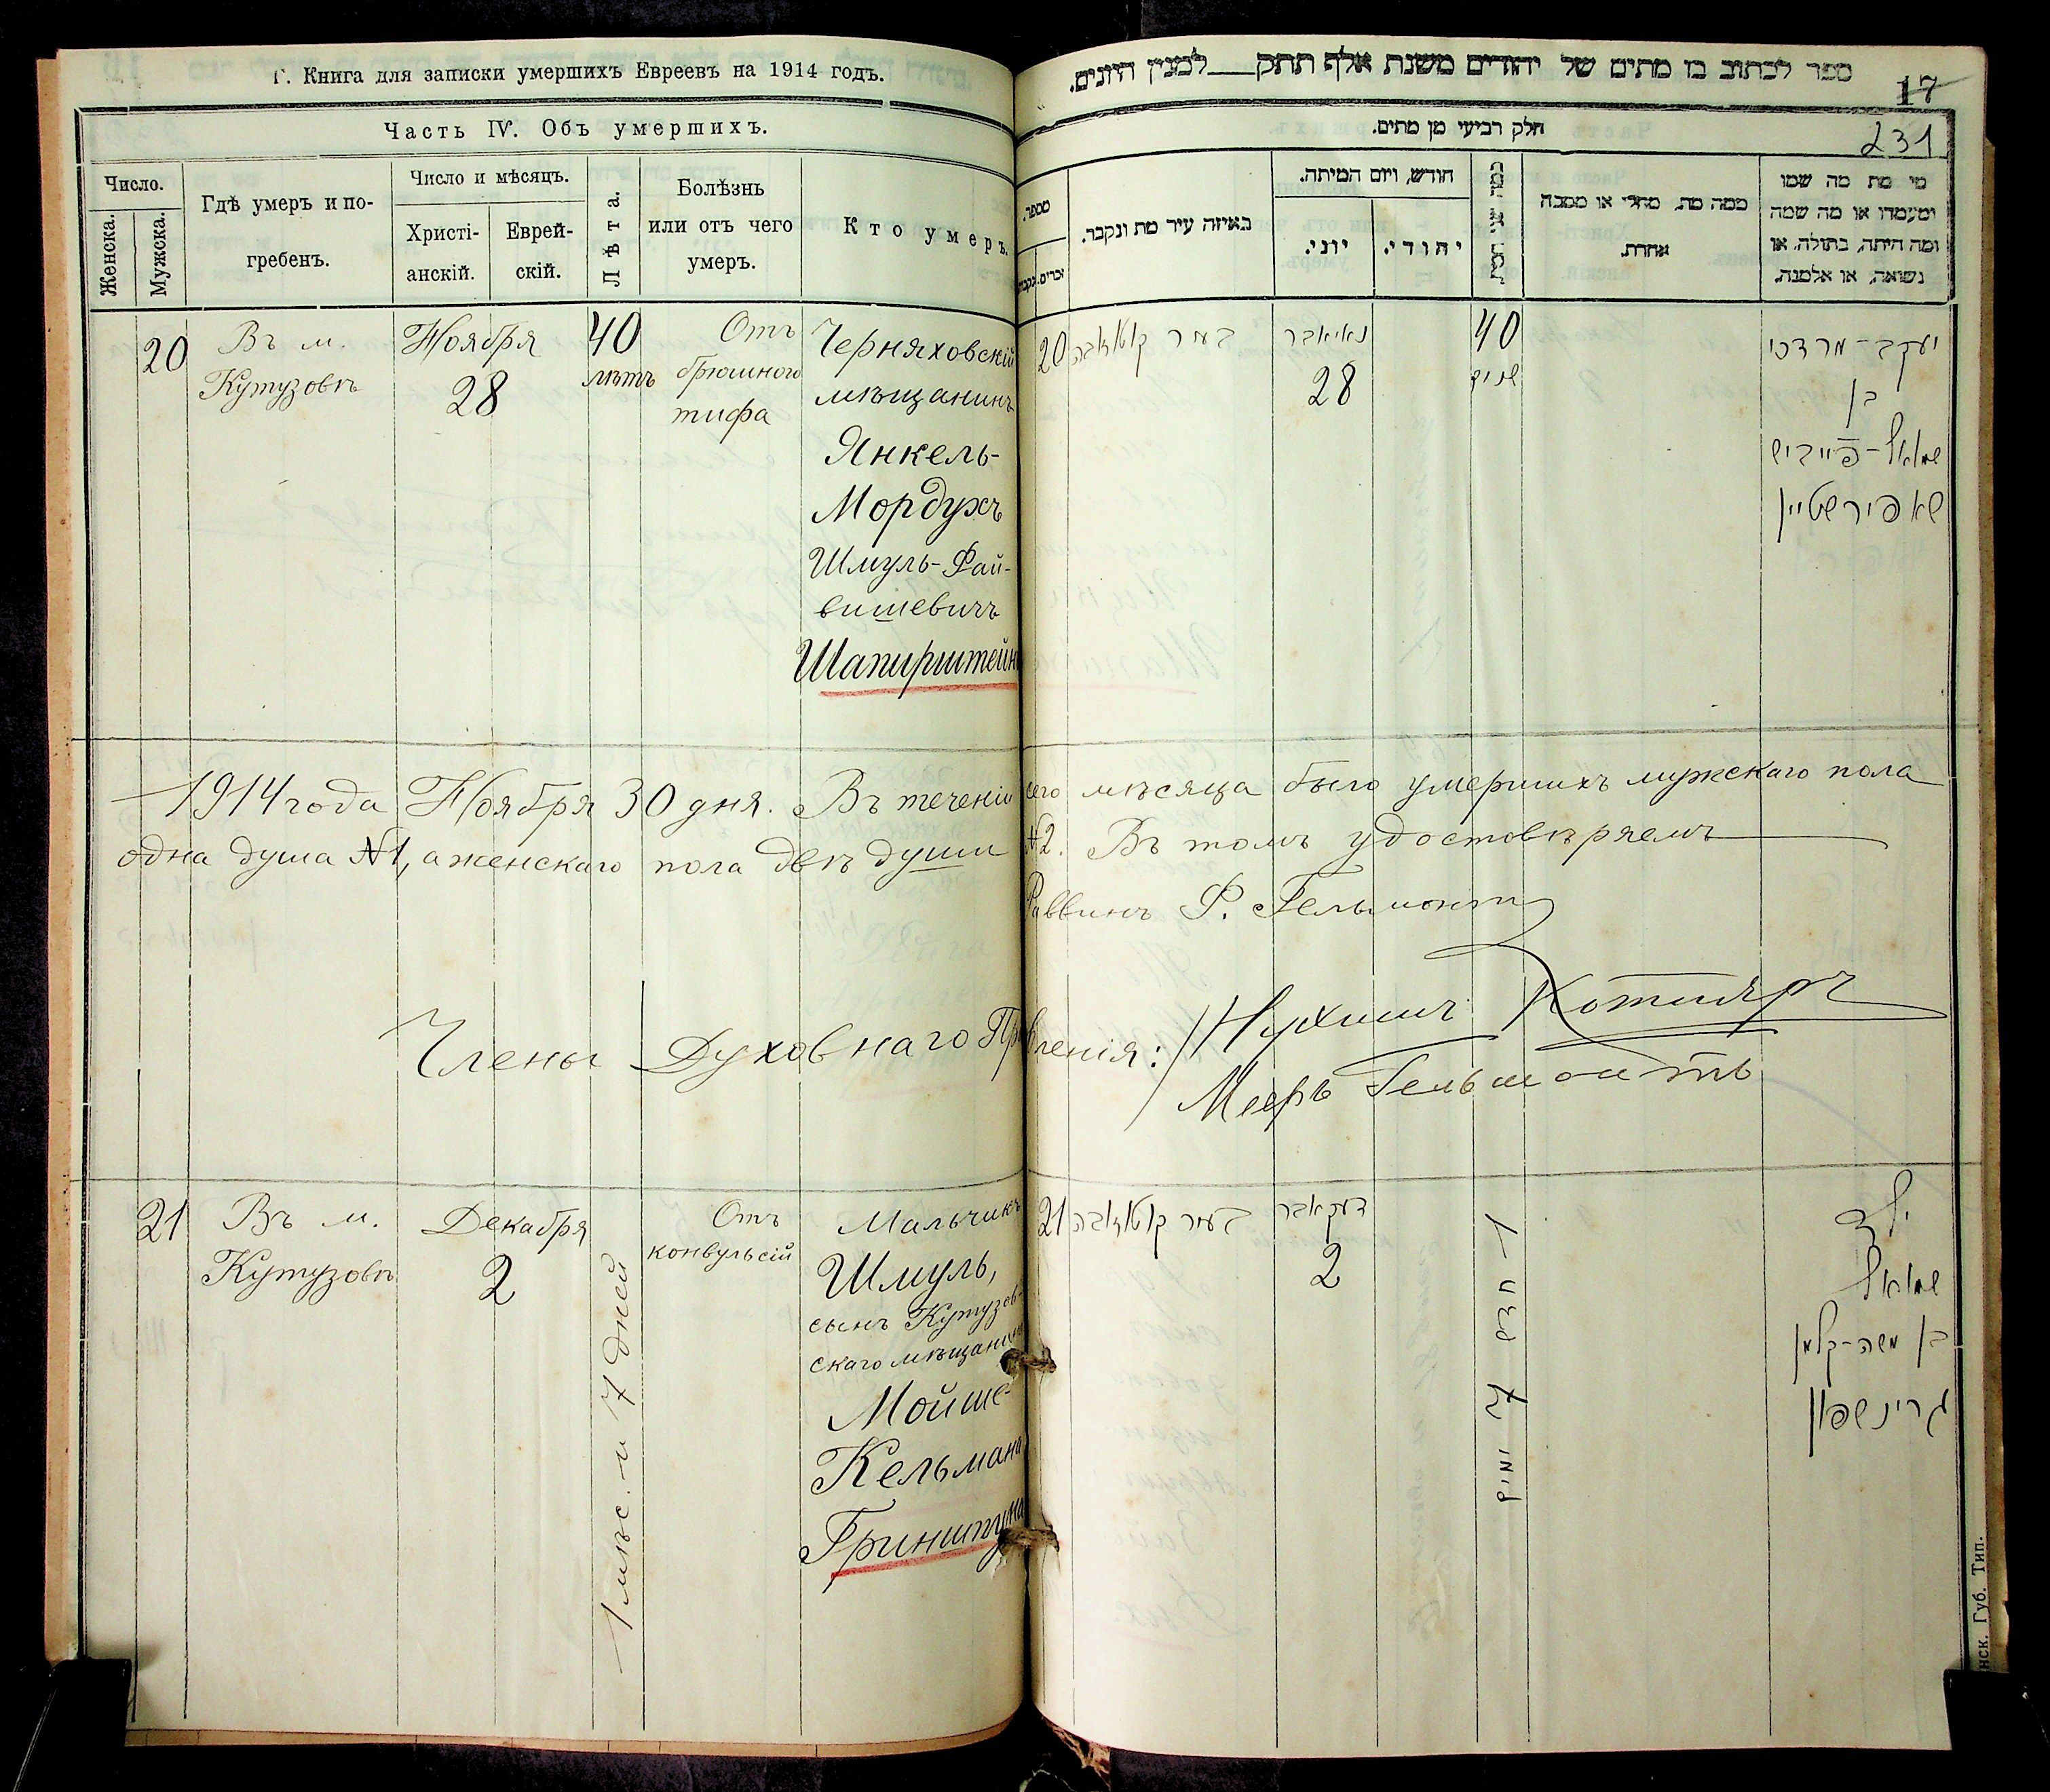 Г. Книга для записки умершихъ Евреевъ на 1914 годъ.
Часть IV. Объ умершихъ.
Число.
Женска.
Мужска.
Гдѣ умеръ и по-
гребенъ.
Число и мѣсяцъ.
Христі-
анскій.
Еврей-
скій.
Лѣта.
Болѣзнь
или отъ чего
умеръ.
Кто умеръ.
20
Въ м.
Кутузовѣ
Ноября
28
40
лѣтъ
Отъ
брюшного
тифа
Черняховскій
мѣщанинъ
Янкель-
Мордухъ
Шмуль-Фай-
вишевичъ
Шапирштейнъ
1914 года Ноября 30 дня. Въ теченіи сего мѣсяца было умершихъ мужскаго пола
одна душа №1, а женскаго пола двѣ души №2. Въ томъ удостовѣряемъ
Раввинъ Ф. Гельмонтъ
Члены Духовнаго Правленія: Нухимъ Котляръ
Мееръ Гельмонтъ
21
Въ м.
Кутузовѣ
Декабря
2
1 мѣс. и 7 дней
Отъ
конвульсій
Мальчикъ
Шмуль,
сынъ Кутузов-
скаго мѣщанина
Мойше-
Кельмана
Гриншпуна
ספר לכתוב בו מתים של יהודים משנת אלף תתק לפנין היונים.
17
231
חלק רביעי מן מתים.
מספר.
זכרים.
נקבות
באיזה עיר מת ונקבר.
חודש, ויום המיתה.
יוני.
יהודי.
ממה מת, מחלי או מסבה
אחרת.
מי מת מה שמו
ומעמדו או מה שמה
ומה היתה, בתולה, או
נשואה, או אלמנה.
20
בעיר קוטוזאבה
נאיאבר
28
40
שנים
יעקב-מרדכי
בן
שמואל-פייביש
שאפירשטיין
21
בעיר קוטוזאבה
דעקאבר
2
1 חדש 7 ימים
ילד
שמואל
בן משה-קלמן
גרינשפון
нск. Губ. Тип.